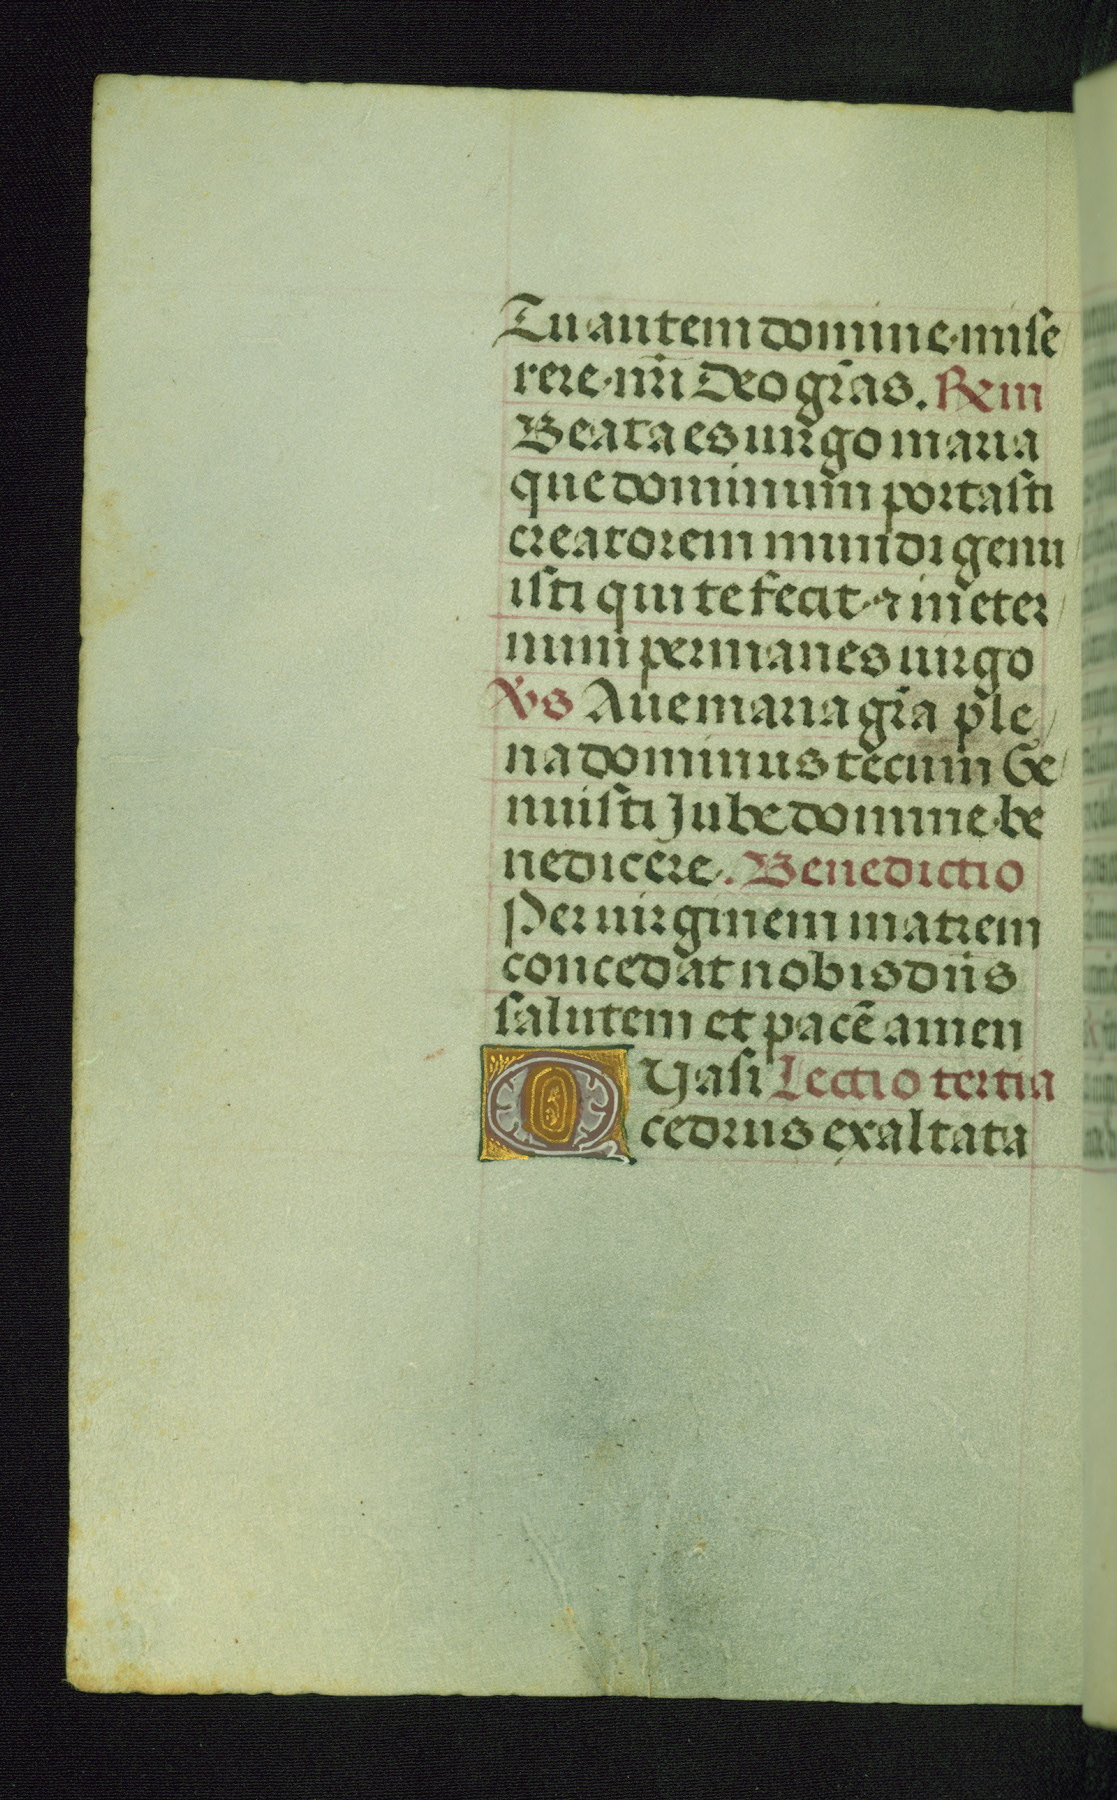 Tu autem domine mise
rere nr̄i Deo gr̄as. R̄em
Beata es uirgo maria
que dominum̄ portasti
creatorem mundi genu
isti qui te fecit ⁊ in eter
num permanes uirgo
V̄s Aue maria gr̄a ple
na dominus tecum Ge
nuisti Jube domine be
nedicere. Benedictio
Per uirginem matrem
concedat nobis dn̄s
salutem et pacē amen
Quasi Lectio tertia
cedrus exaltata